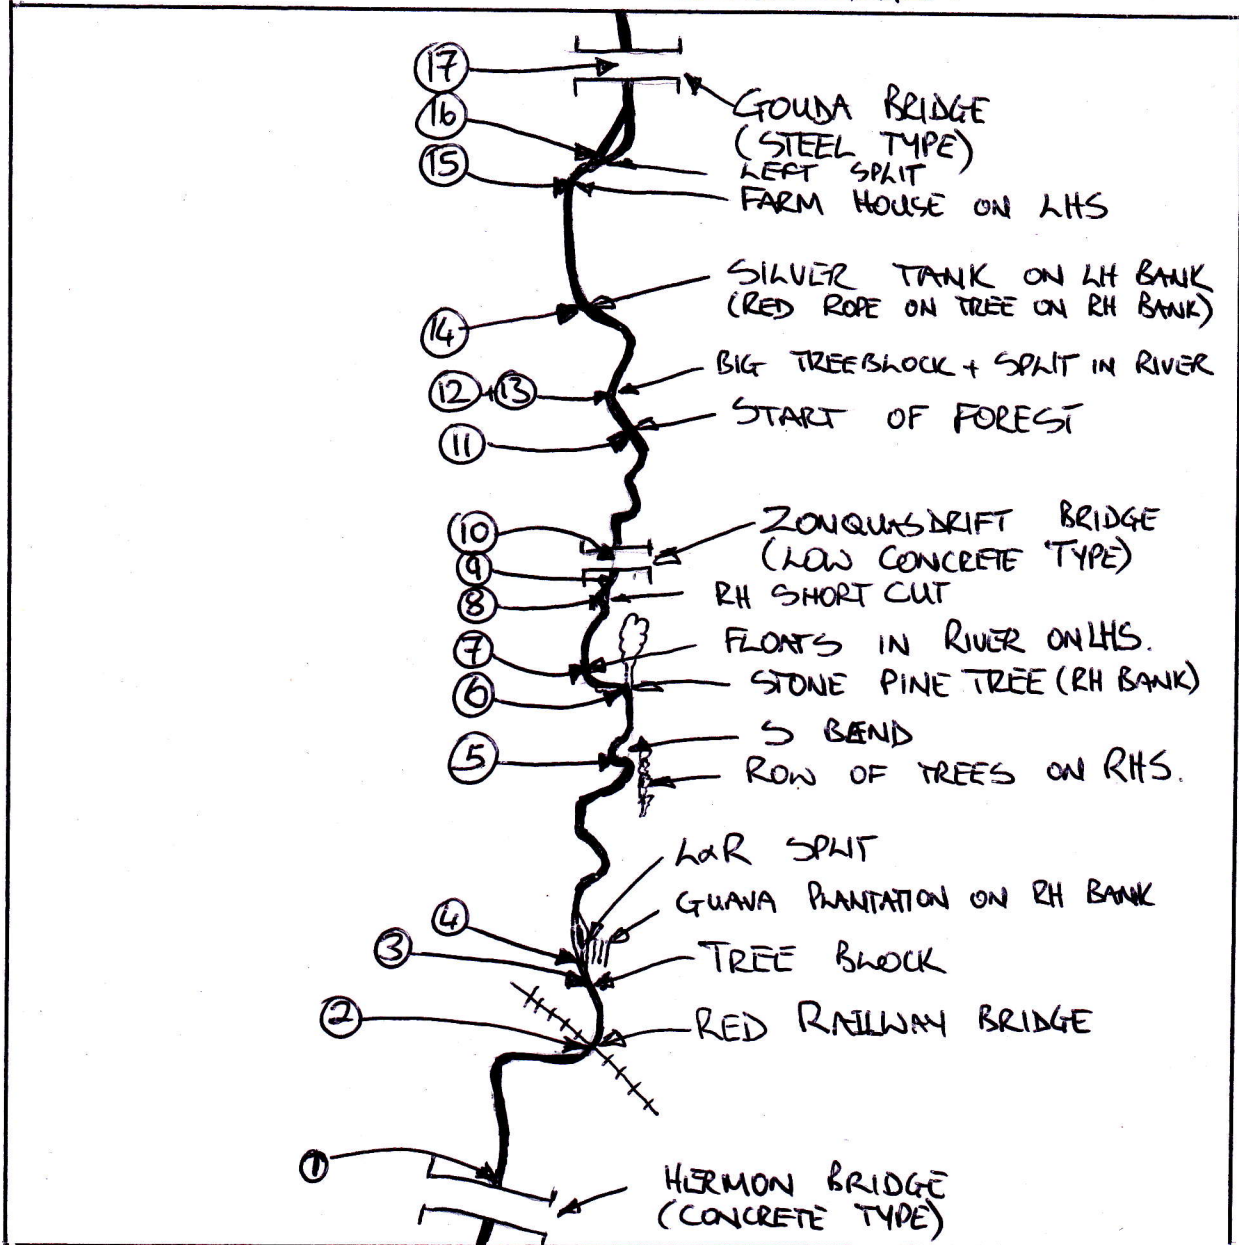 17
GOUDA BRIDGE
(STEEL TYPE)
16
LEFT SPLIT
15
FARM HOUSE ON LHS
SILVER TANK ON LH BANK
(RED ROPE ON TREE ON RH BANK)
14
BIG TREEBLOCK + SPLIT IN RIVER
12 + 13
START OF FOREST
11
ZONQUASDRIFT BRIDGE
(LOW CONCRETE TYPE)
10
9
RH SHORT CUT
8
FLOATS IN RIVER ON LHS.
7
STONE PINE TREE (RH BANK)
6
S BEND
5
ROW OF TREES ON RHS.
L&R SPLIT
GUAVA PLANTATION ON RH BANK
4
3
TREE BLOCK
2
RED RAILWAY BRIDGE
1
HERMON BRIDGE
(CONCRETE TYPE)